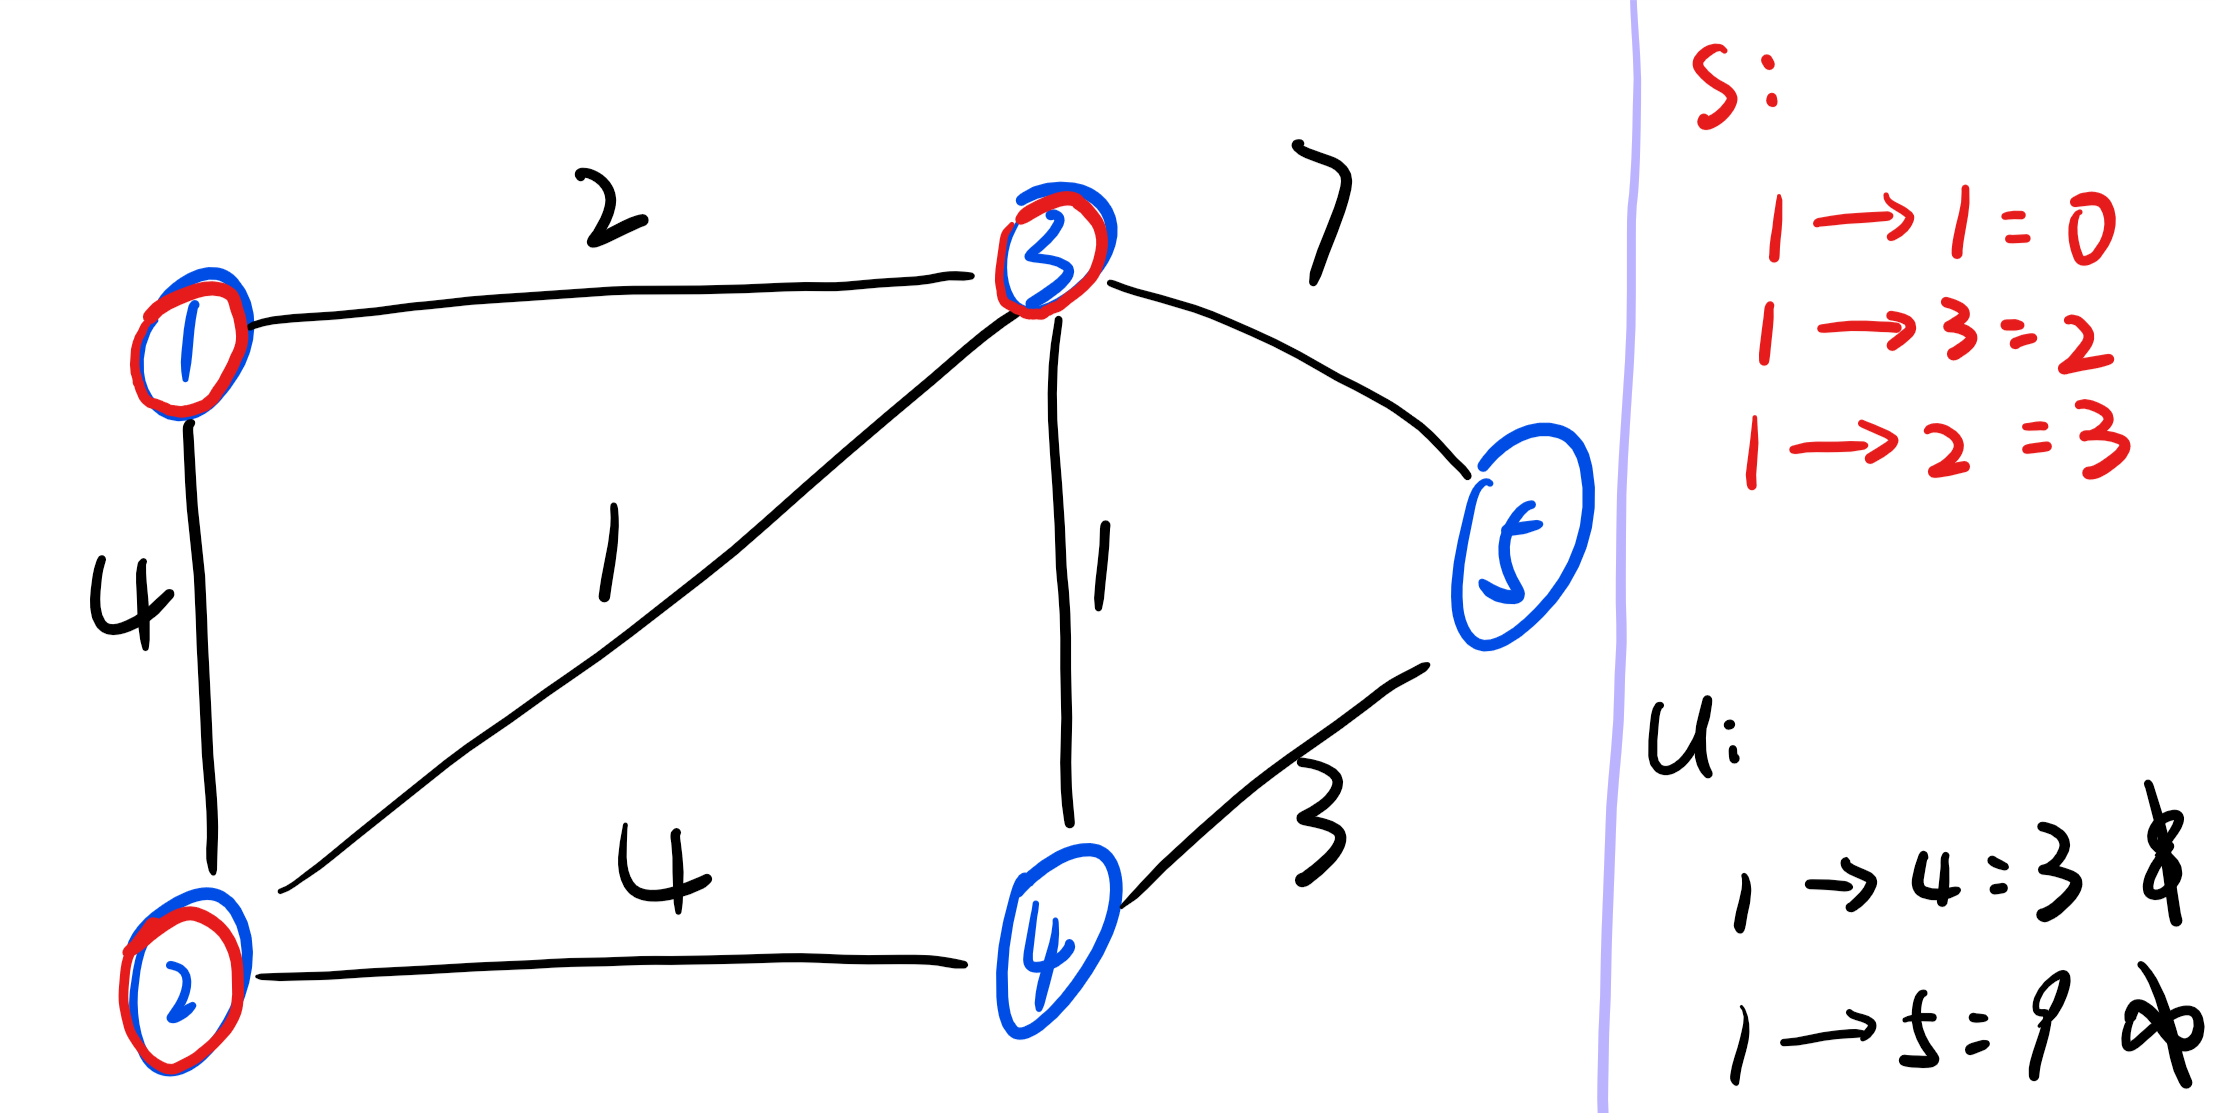 2
7
3
1
5
4
1
1
4
3
2
4
S:
1→1=0
1→3=2
1→2=3
U:
1→4=3
1→5=9